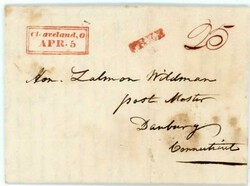 Cleveland, O
APR. 5
FREE
25
Hon. Zalmon Wildman
post Master
Danbury
Connecticut